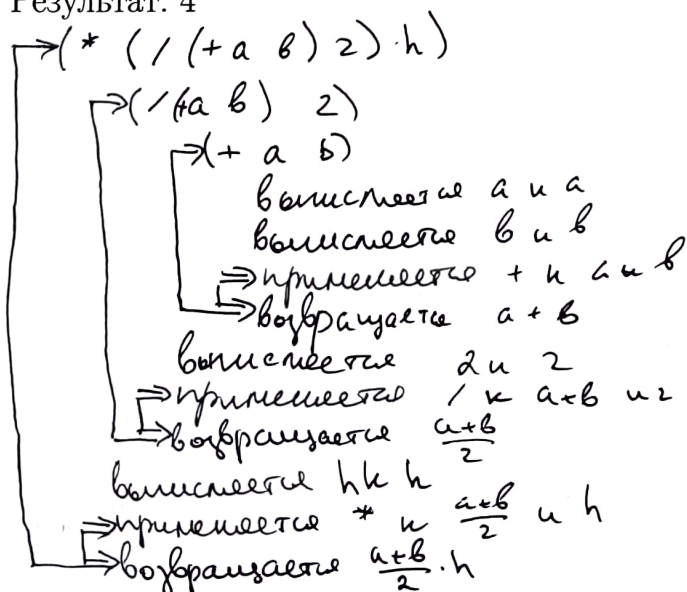 Результат: 4
(* (/ (+ a b) 2) · h)
(/ (+a b) 2)
(+ a b)
вычисляется a и a
вычисляется b и b
применяется + к a и b
возвращается a + b
вычисляется 2 и 2
применяется / к a+b и 2
возвращается \frac{a+b}{2}
вычисляется h к h
применяется * к \frac{a+b}{2} и h
возвращается \frac{a+b}{2} · h